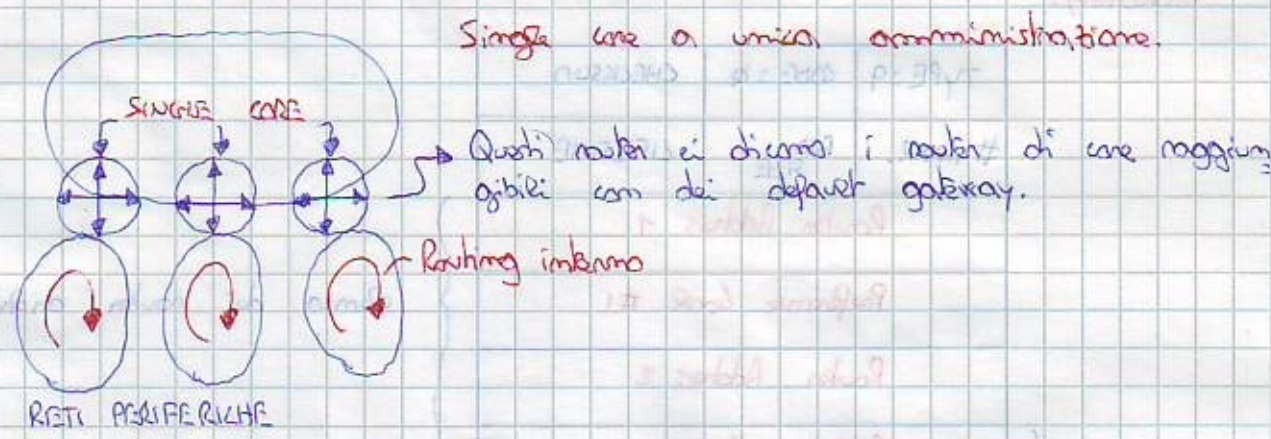 Single core a unica amministrazione.
SINGLE CORE
Questi router ci dicono i router di core raggiun
gibili con dei default gateway.
Routing interno
RETI PERIFERICHE